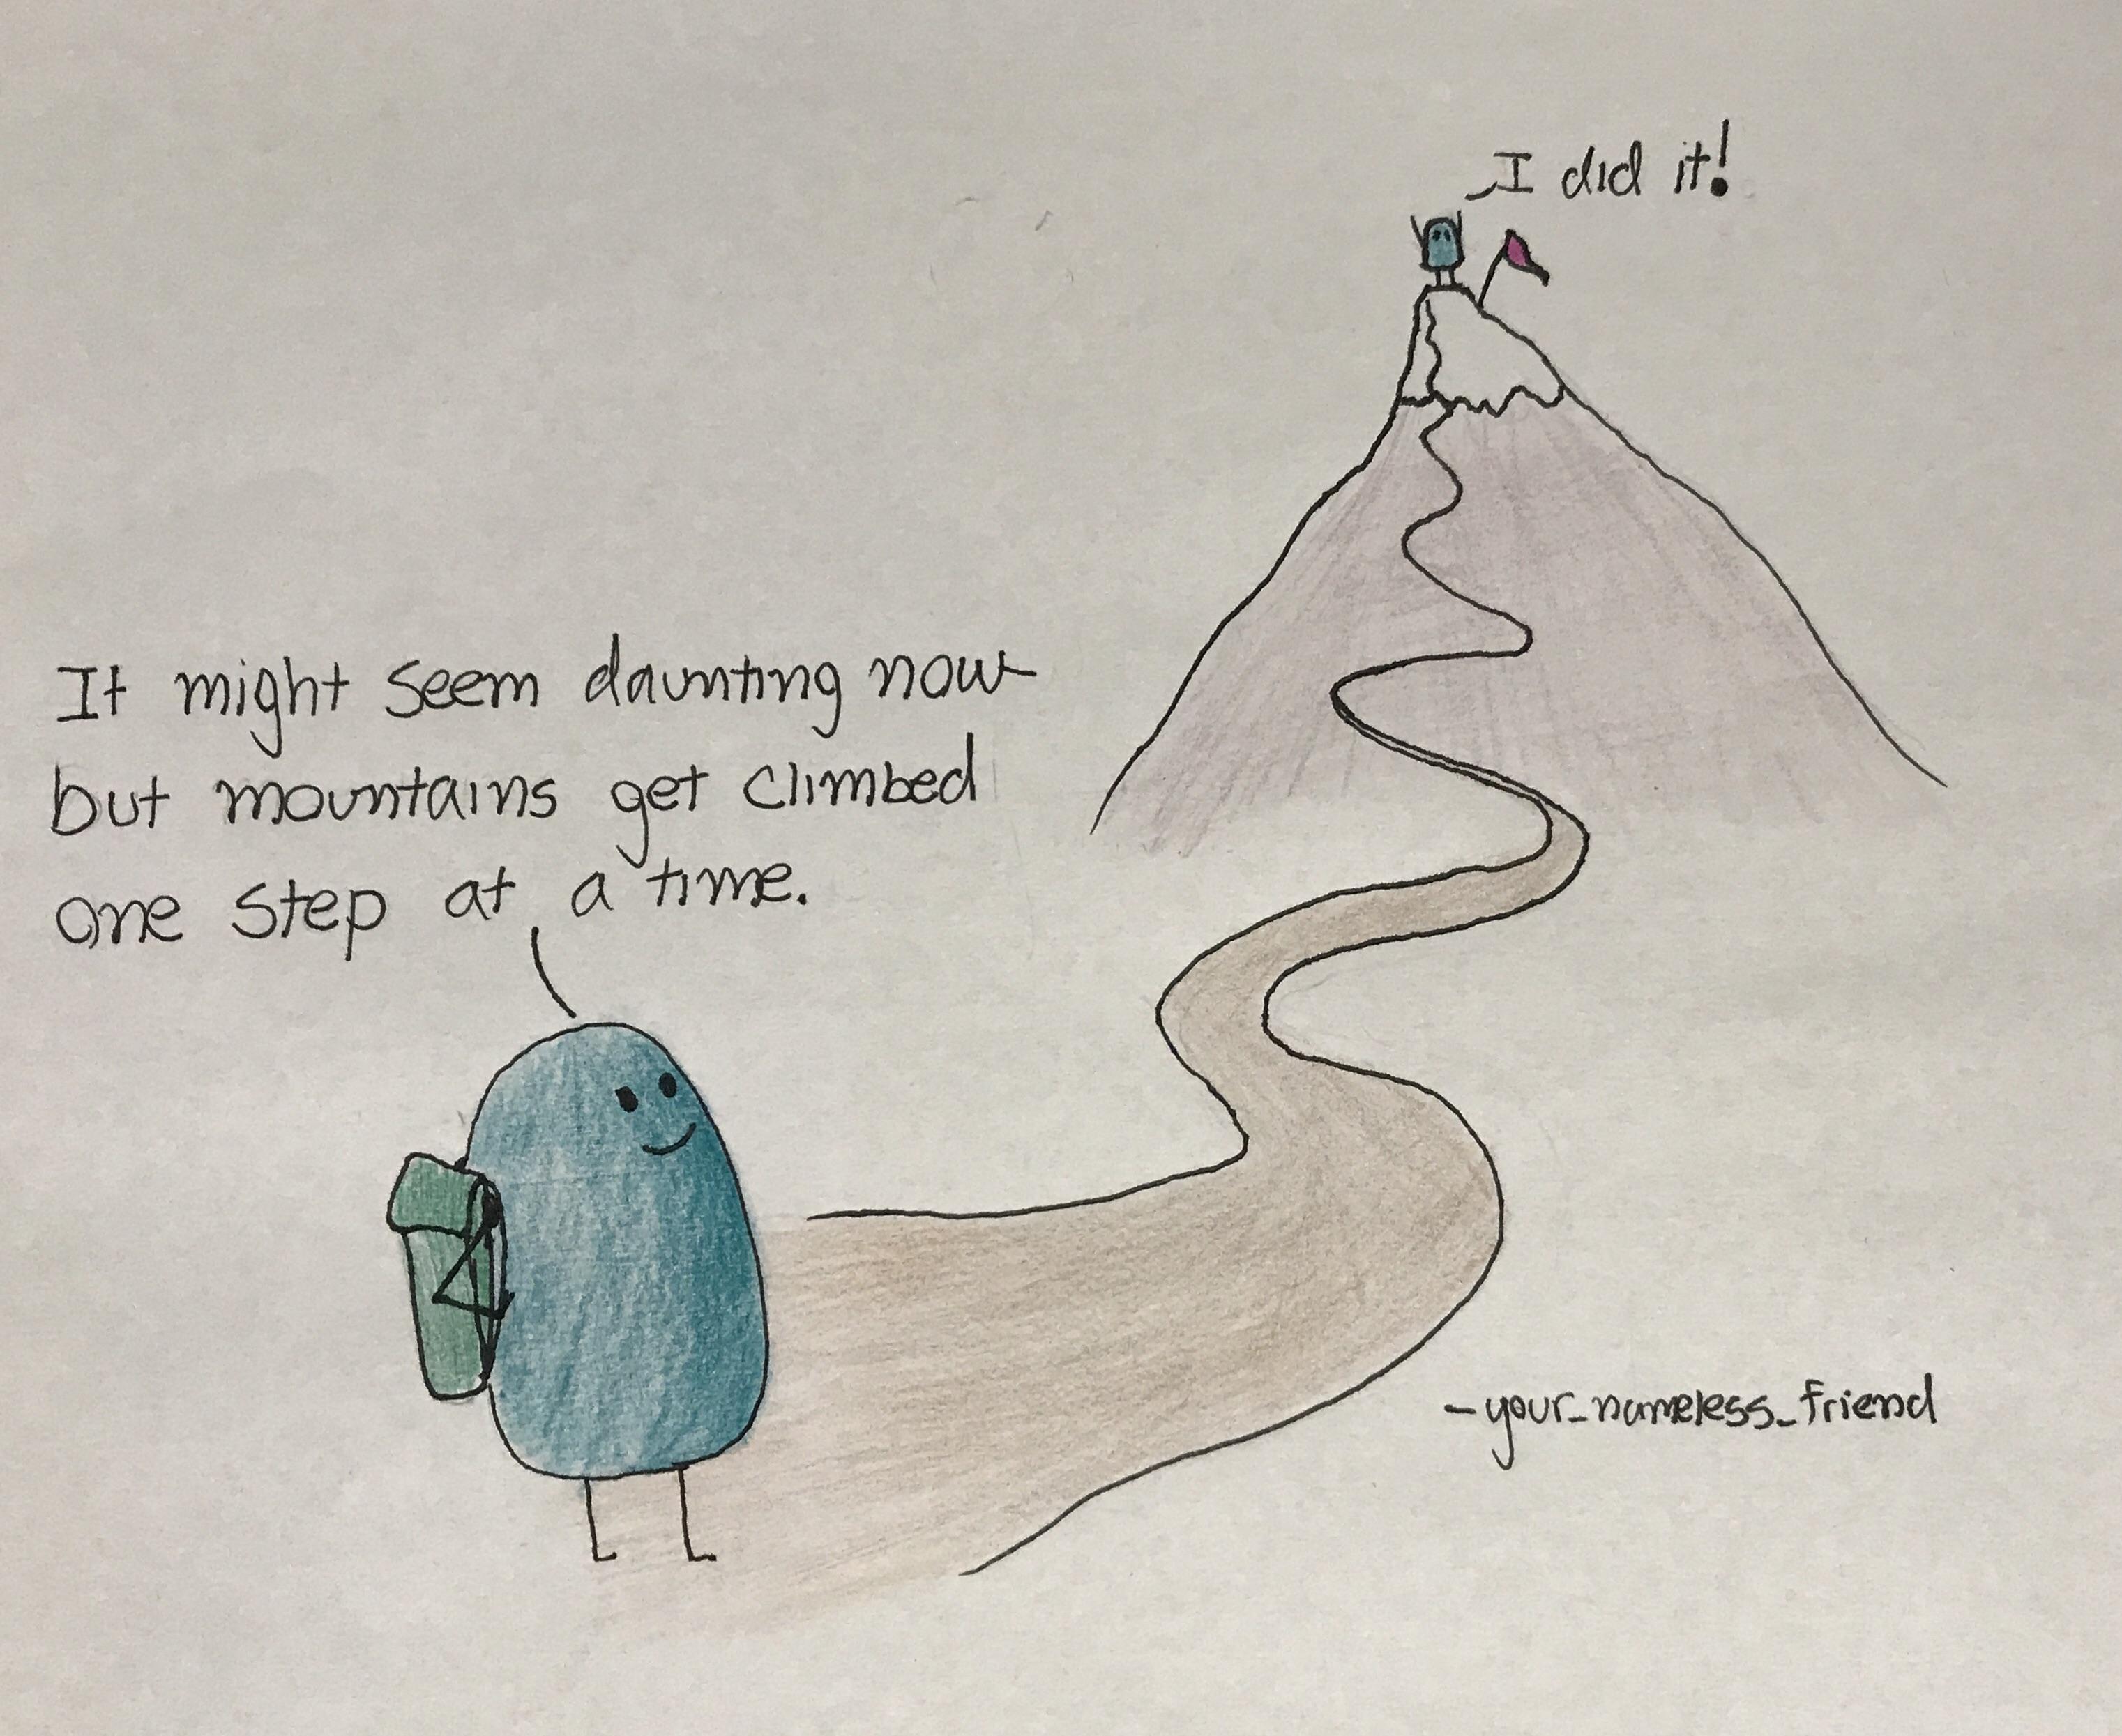 I did it!
It might seem daunting now
but mountains get climbed
one step at a time.
-your_nameless_friend